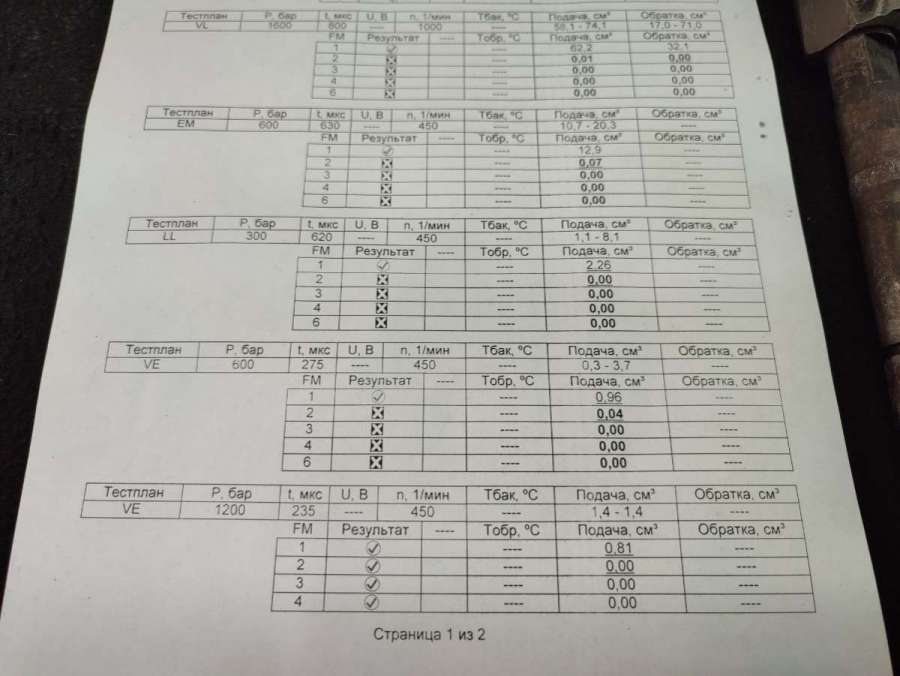 Тестплан P, бар t, мкс U, В n, 1/мин Тбак, ºС Подача, см³ Обратка, см³
VL 1600 800 ---- 1000 ---- 58,1 - 74,1 17,0 - 71,0
FM Результат ---- Тобр, ºС Подача, см³ Обратка, см³
1 ---- 62,2 32,1
2 ---- 0,01 0,00
3 ---- 0,00 0,00
4 ---- 0,00 0,00
6 ---- 0,00 0,00
Тестплан P, бар t, мкс U, В n, 1/мин Тбак, ºС Подача, см³ Обратка, см³
EM 600 630 ---- 450 ---- 10,7 - 20,3 ----
FM Результат ---- Тобр, ºС Подача, см³ Обратка, см³
1 ---- 12,9 ----
2 ---- 0,07 ----
3 ---- 0,00 ----
4 ---- 0,00 ----
6 ---- 0,00 ----
Тестплан P, бар t, мкс U, В n, 1/мин Тбак, ºС Подача, см³ Обратка, см³
LL 300 620 ---- 450 ---- 1,1 - 8,1 ----
FM Результат ---- Тобр, ºС Подача, см³ Обратка, см³
1 ---- 2,26 ----
2 ---- 0,00 ----
3 ---- 0,00 ----
4 ---- 0,00 ----
6 ---- 0,00 ----
Тестплан P, бар t, мкс U, В n, 1/мин Тбак, ºС Подача, см³ Обратка, см³
VE 600 275 ---- 450 ---- 0,3 - 3,7 ----
FM Результат ---- Тобр, ºС Подача, см³ Обратка, см³
1 ---- 0,96 ----
2 ---- 0,04 ----
3 ---- 0,00 ----
4 ---- 0,00 ----
6 ---- 0,00 ----
Тестплан P, бар t, мкс U, В n, 1/мин Тбак, ºС Подача, см³ Обратка, см³
VE 1200 235 ---- 450 ---- 1,4 - 1,4 ----
FM Результат ---- Тобр, ºС Подача, см³ Обратка, см³
1 ---- 0,81 ----
2 ---- 0,00 ----
3 ---- 0,00 ----
4 ---- 0,00 ----
Страница 1 из 2